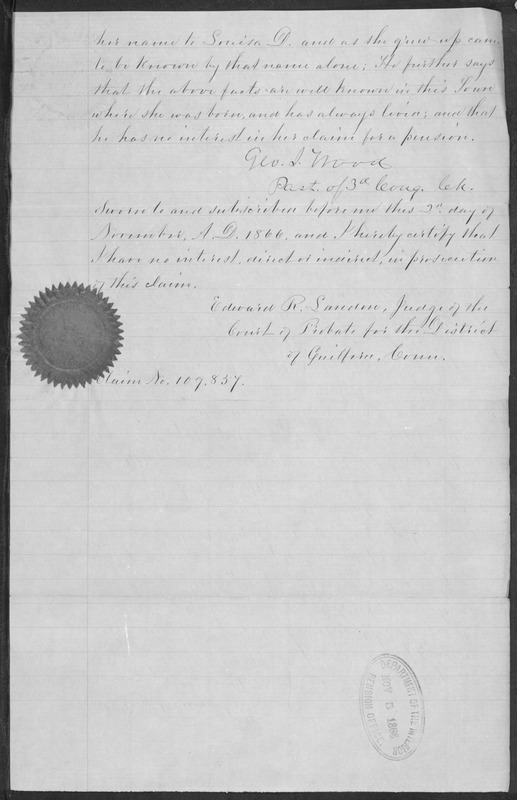 her name to Louisa D. and as she grew up came
to be known by that name alone; He further says
that the above facts are well known in this Town
where she was born, and has always lived; and that
he has no interest in her claim for a pension.
Geo. I. Wood
Past. of 3d Cong. Ch.
Sworn to and subscribed before me this 2d day of
November, A. D. 1866, and I hereby certify that
I have no interest, direct or indirect, in prosecution
of this claim.
Edward R. Landon, Judge of the
Court of Probate for the District
of Guilford, Conn.
Claim No. 109.857.
DEPARTMENT OF THE INTERIOR
NOV 5 1866
PENSION OFFICE